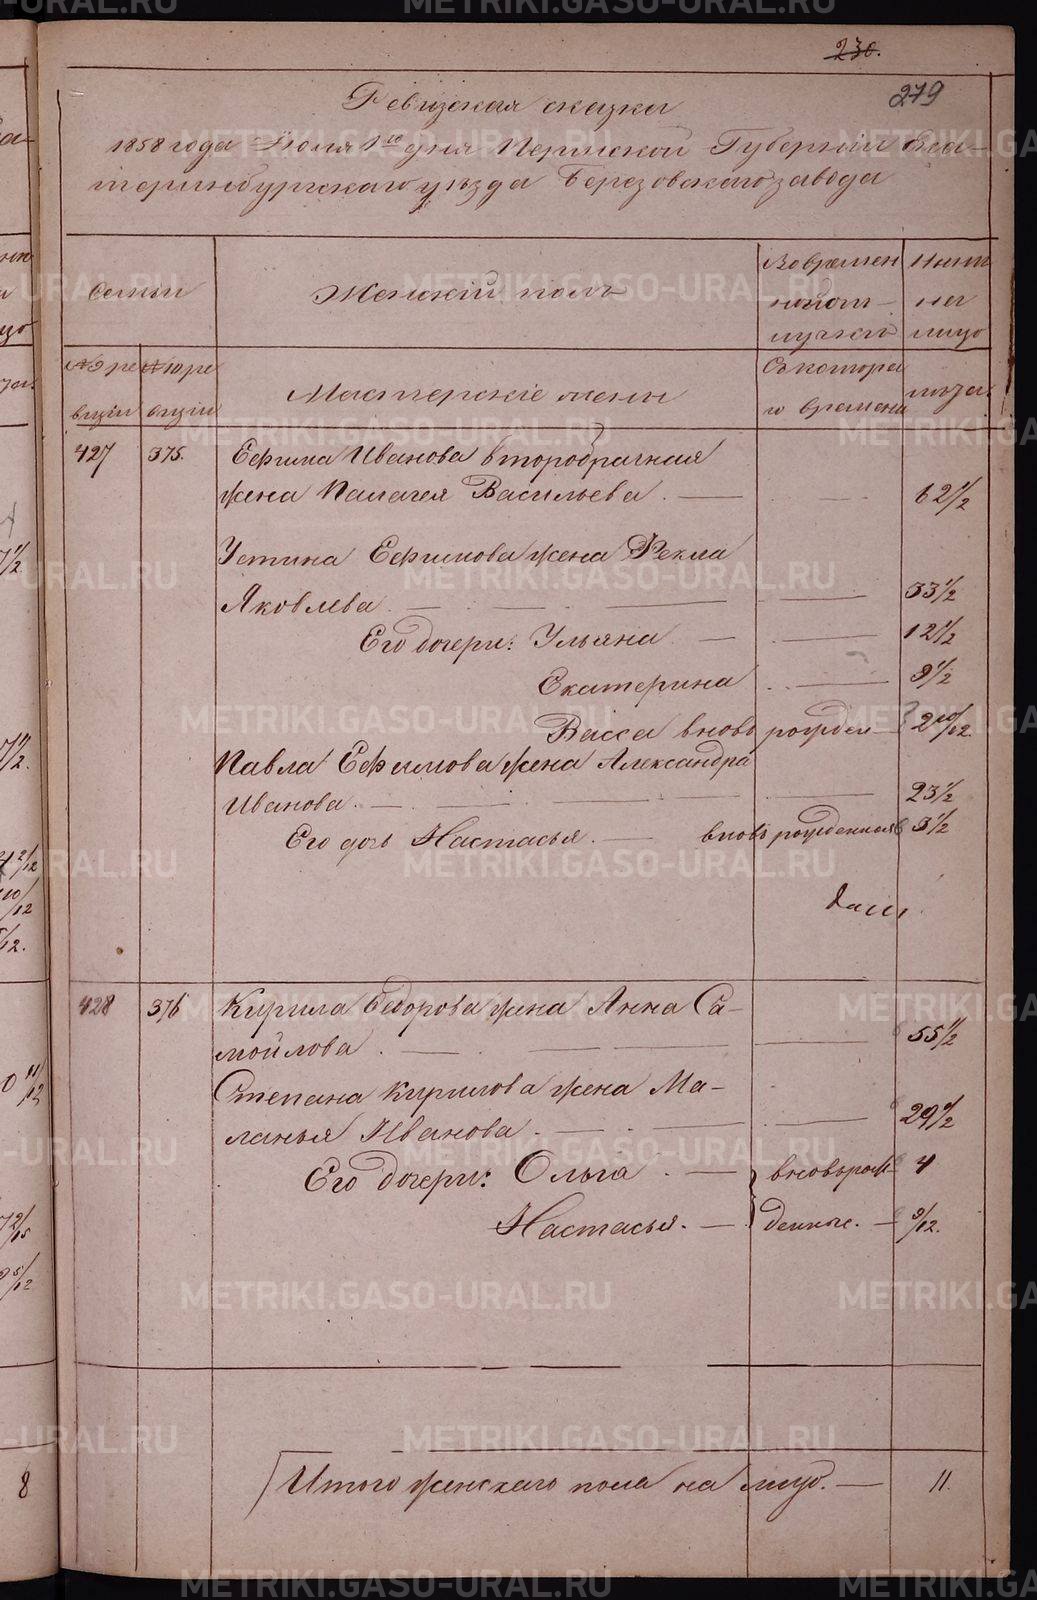 230.
279
Ревизская сказка
1858 года Июля 1го дня Пермской Губернии Ека-
теринбургскаго уезда Березовскаго завода
Семьи
Женский пол
Во времен
ной от
лучки
Ныне
на
лицо
№ 9 ре
визии
№ 10 ре
визии
Мастерские жены
С котора
го времени
лета
427
375.
Ефима Иванова второбрачная
жена Палагея Васильева. — 62 1/2
Устина Ефимова жена Фекла
Яковлева — 33 1/2
Его дочери: Ульяна — 12 1/2
Екатерина — 9 1/2
Васса вновь рожден — 2 10/12
Павла Ефимова жена Александра
Иванова. — 23 1/2
Его дочь Настасья. — вновь рожденная 3 1/2
428
376
Кирила Федорова жена Анна Са-
мойлова. — 55 1/2
Степана Кирилова жена Ма-
ланья Иванова. — 29 1/2
Его дочери: Ольга. — вновь рож- 4
Настасья. — денные. — 9/12.
Итого женскаго пола на лицо. — 11.
8
METRIKI.GASO-URAL.RU